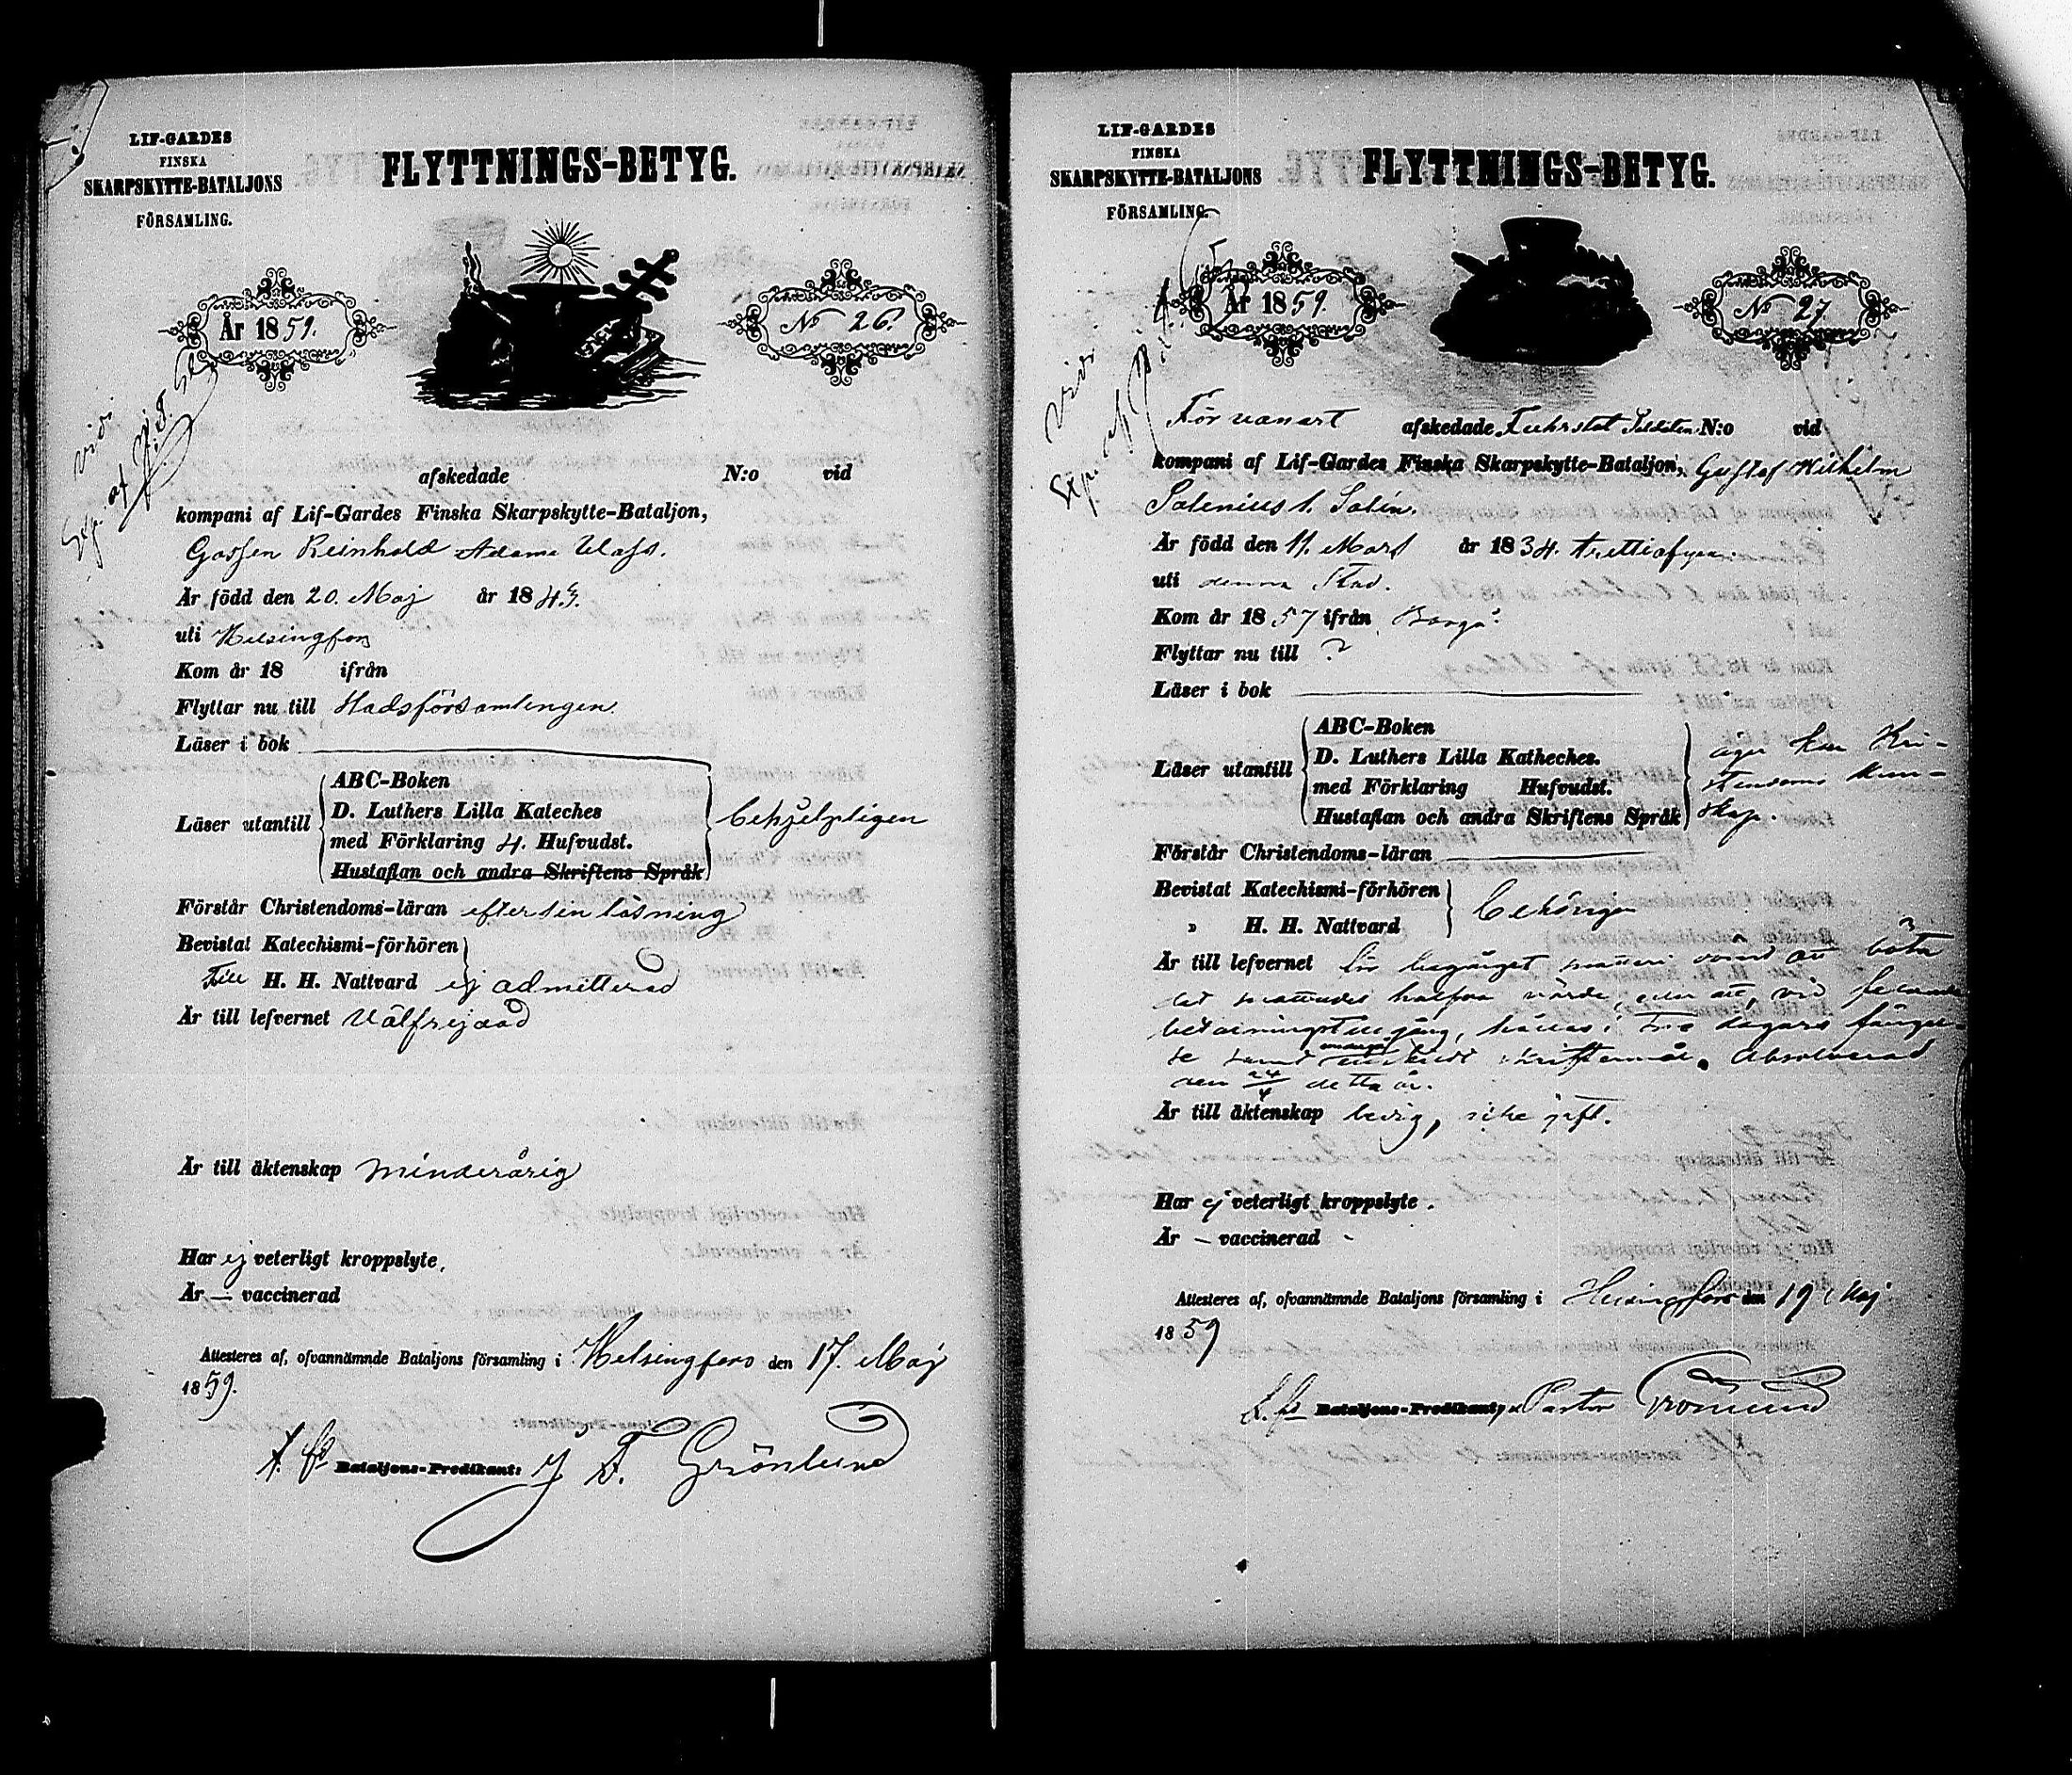 LIF-GARDES
FINSKA
SKARPSKYTTE-BATALJONS
FÖRSAMLING.
FLYTTNINGS-BETYG.
År 1859.
No 26.
vidi
afskedade N:o vid
kompani af Lif-Gardes Finska Skarpskytte-Bataljon,
Gossen Reinhold Adam
Är född den 20. Maj år 184
uti Helsingfors
Kom år 18 ifrån
Flyttar nu till Stadsförsamlingen
Läser i bok
Läser utantill
ABC-Boken
D. Luthers Lilla Kateches
med Förklaring 4. Hufvudst.
Hustaflan och andra Skriftens Språk
behjelpligen
Förstår Christendoms-läran efter sin läsning
Bevistat Katechismi-förhören
Till H. H. Nattvard ej admitterad
Är till lefvernet välfrejdad
Är till äktenskap minderårig
Har ej veterligt kroppslyte,
Är — vaccinerad
Attesteres af, ofvannämnde Bataljons församling i Helsingfors den 17. Maj
1859.
Bataljons-Predikant: J F. Grönlund
LIF-GARDES
FINSKA
SKARPSKYTTE-BATALJONS
FÖRSAMLING.
FLYTTNINGS-BETYG.
År 1859.
No 27
vidi
För vanart afskedade Soldaten N:o vid
kompani af Lif-Gardes Finska Skarpskytte-Bataljon, Gustaf Wilhelm
Salenius l. Salin.
Är född den 11. Mars år 1834. trettiofyra.
uti denna Stad.
Kom år 1857 ifrån Borgå
Flyttar nu till ?
Läser i bok
Läser utantill
ABC-Boken
D. Luthers Lilla Katheches.
med Förklaring Hufvudst.
Hustaflan och andra Skriftens Språk
äger Kri-
stendoms Kun-
skap.
Förstår Christendoms-läran
Bevistat Katechismi-förhören
" H. H. Nattvard
behörigen
Är till lefvernet för begånget snatteri dömd att böta
det snattades halfva värde, eller att, vid
bristande tillgång, hållas i tre dagars fängel-
se samt enskildt skriftermål. Absolverad
den 24/4 detta år.
Är till äktenskap ledig, icke gift.
Har ej veterligt kroppslyte.
Är — vaccinerad -
Attesteres af, ofvannämnde Bataljons församling i Helsingfors den 19 Maj
1859
Bataljons-Predikant, Pastor Grönlund